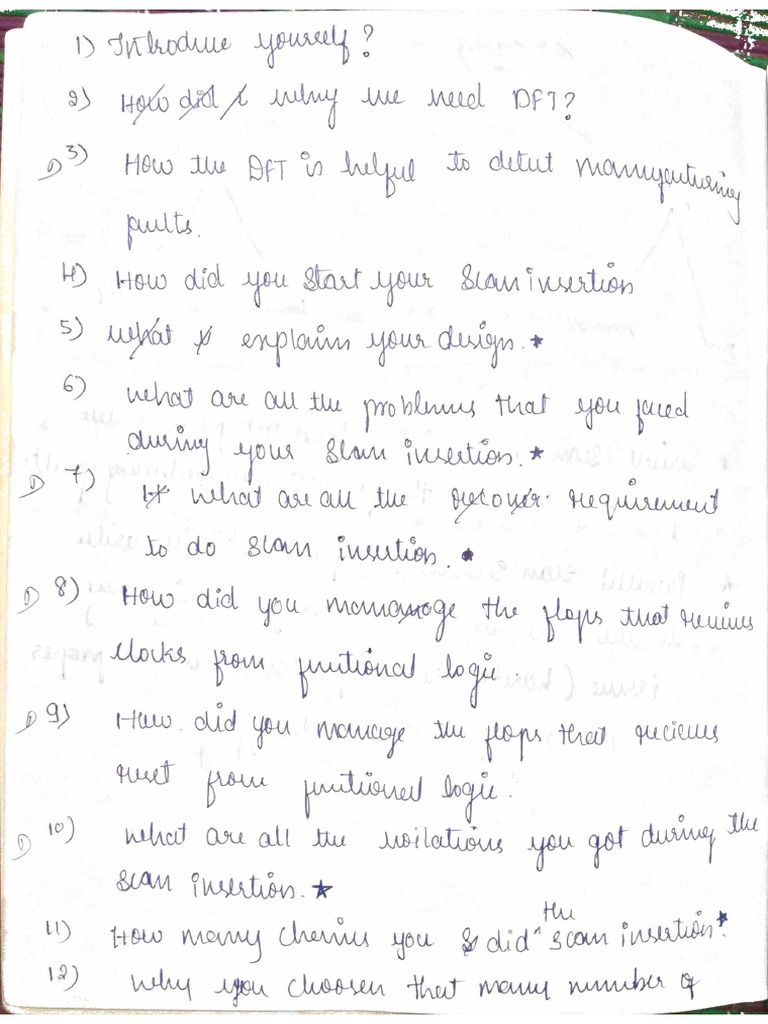 1) Introduce yourself?
2) How did why we need DFT?
3) How the DFT is helpful to detect manufacturing
faults.
4) How did you start your Scan insertion
5) what explains your design. ★
6) what are all the problems that you faced
during your Scan insertion. ★
7) It what are all the recover requirement
to do scan insertion. ★
8) How did you manage the flops that recieves
clocks from funtional logic.
9) How did you manage the flops that recieves
reset from funtional logic.
10) what are all the voilations you got during the
scan insertion. ★
11) How many chains you did ^ the scan insertion. ★
12) why you choosen that many number of